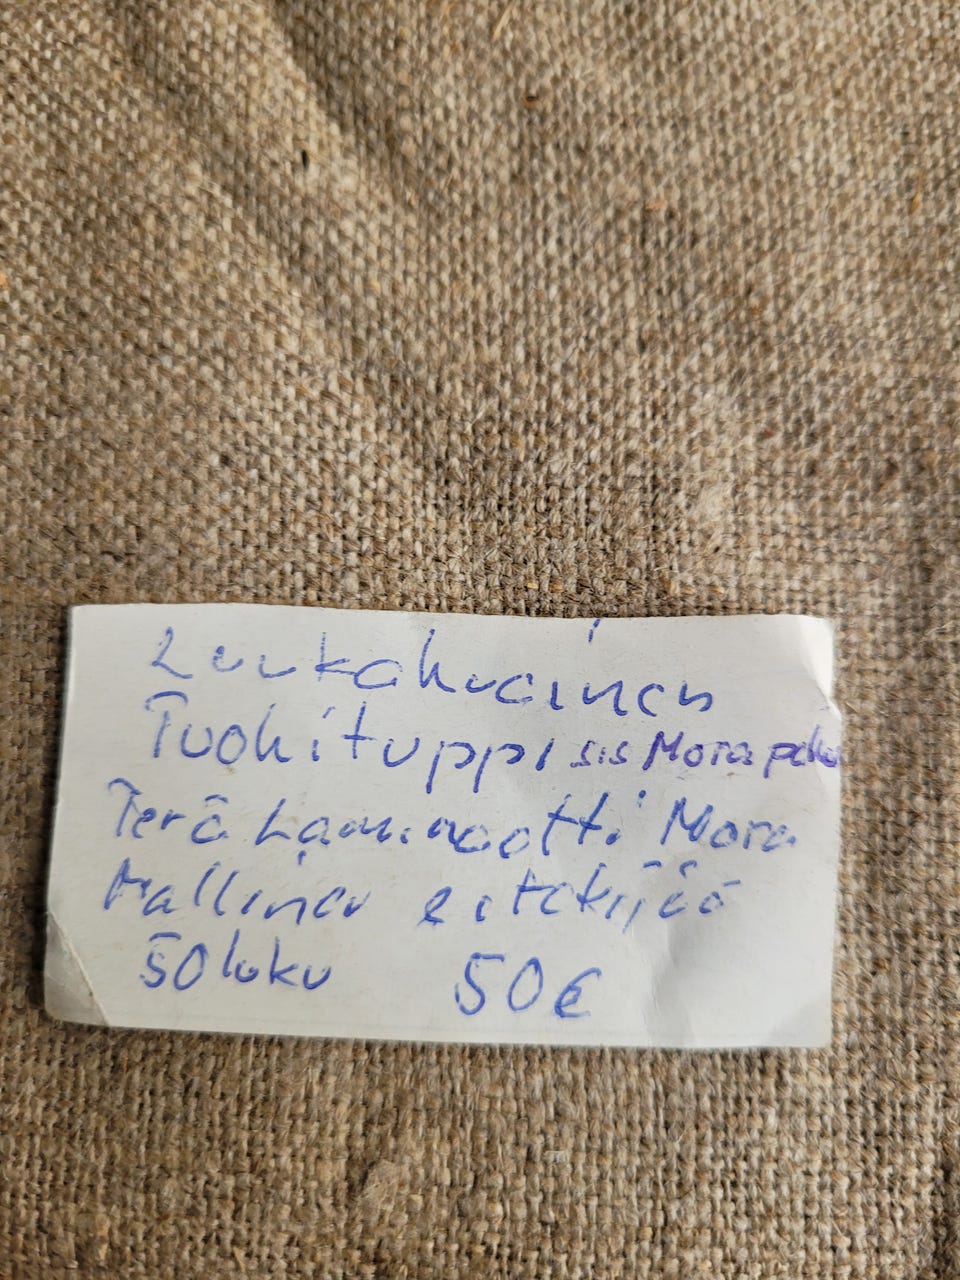 Luukahvainen
Tuohituppi sis Mora
Terä Laminaatti Mora
Mallinen ei tekijää
50 luku 50€